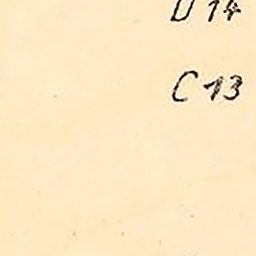 D 14
C 13